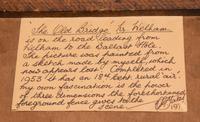 'The Old Bridge' Nr. Welham.
is on the road leading from
Welham to the Ballast Hole.
The picture was painted from
a sketch made by myself, which
now appears lost. Completed in
1953 it has an 18th. cent. 'rural air'.
My own fascination is the power
of three dimensions the foreshortened
foreground fence gives to the
scene.